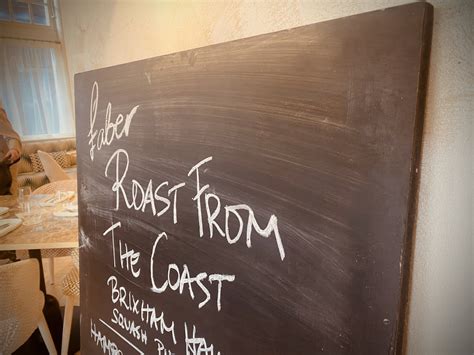 faber
ROAST FROM
THE COAST
BRIXHAM
SQUASH